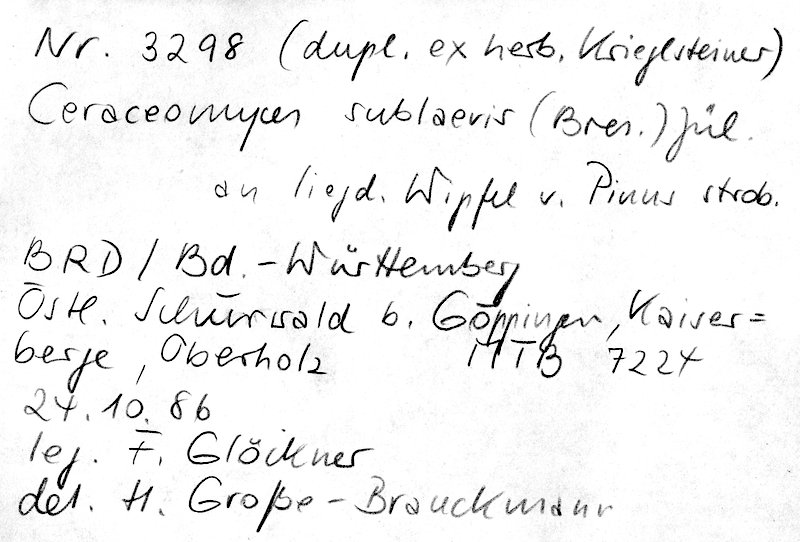 Nr. 3298 (dupl. ex herb. Krieglsteiner)
Ceraceomyces sublaevis (Bres.) Jül.
an liegd. Wipfel v. Pinus strob.
BRD / Bd.-Württemberg
Östl. Schurwald b. Göppingen, Kaiser=
berge, Oberholz MTB 7224
24.10.86
leg. F. Glöckner
det. H. Große-Brauckmann